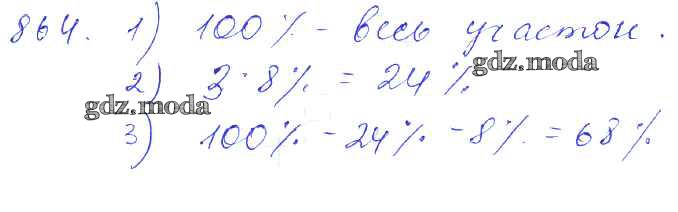 864. 1) 100% - весь участок.
gdz.moda
2) 3 · 8% = 24%
gdz.moda
3) 100% - 24% - 8% = 68%